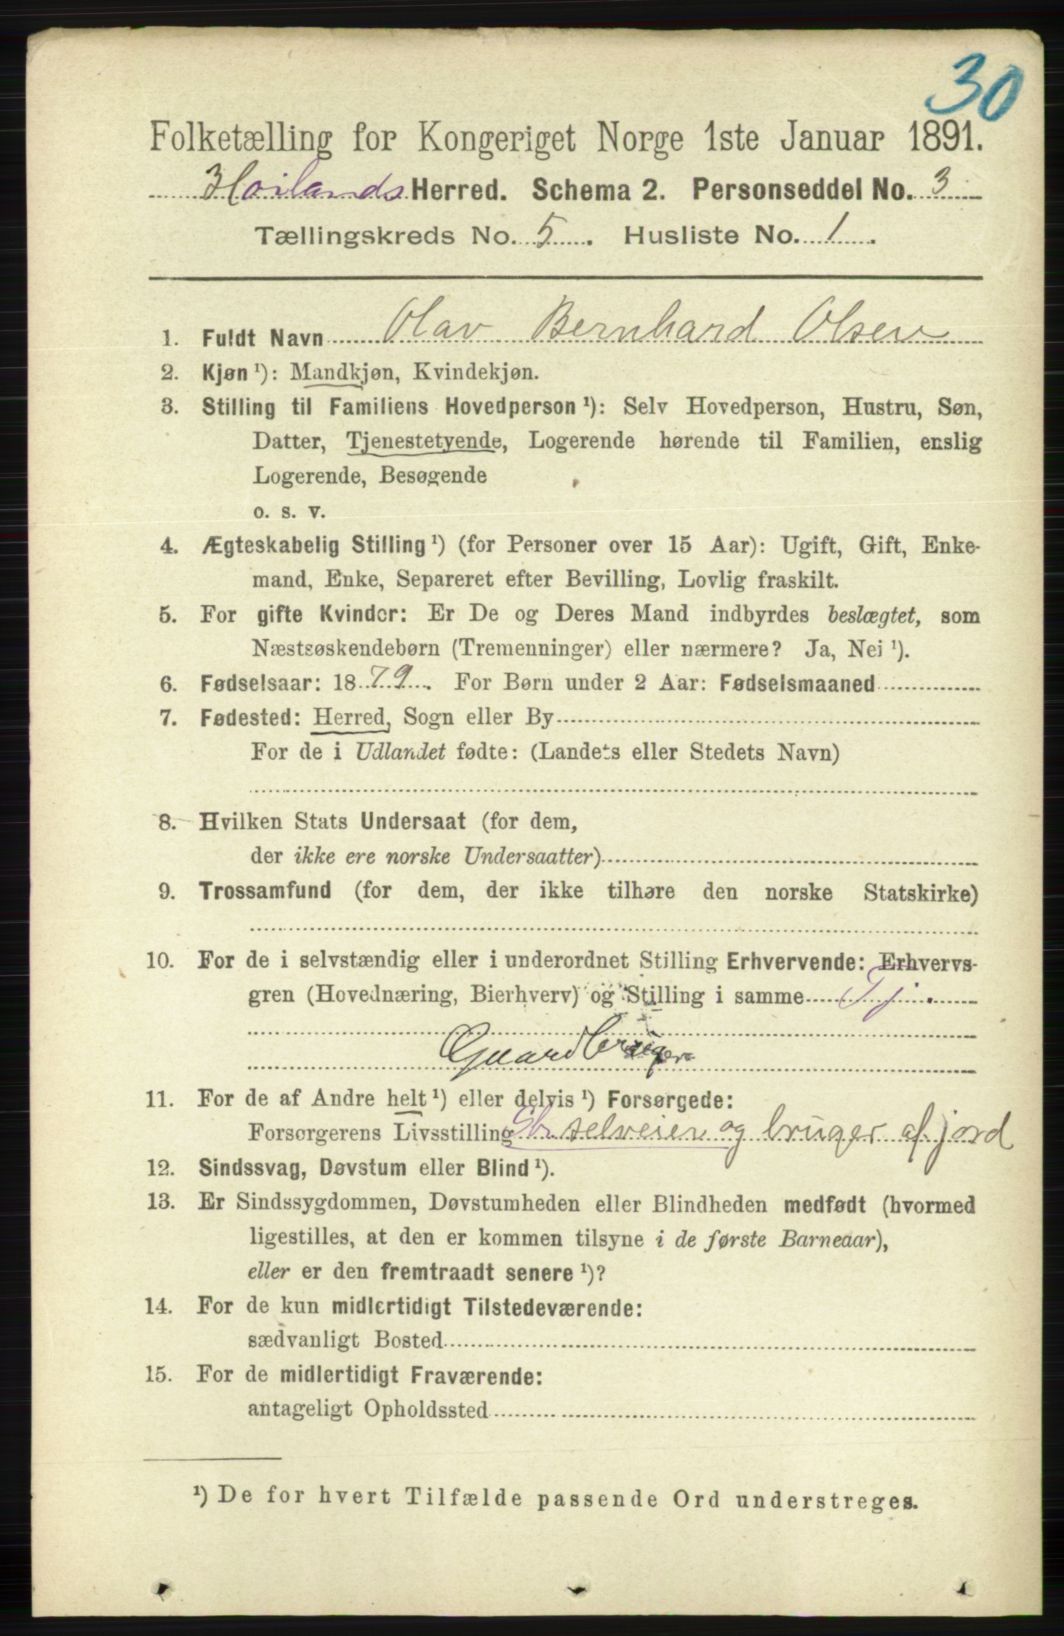 30
Folketælling for Kongeriget Norge 1ste Januar 1891.
Høilands Herred. Schema 2. Personseddel No. 3
Tællingskreds No. 5. Husliste No. 1.
1. Fuldt Navn Olav Bernhard Olsen
2. Kjøn ¹): Mandkjøn, Kvindekjøn.
3. Stilling til Familiens Hovedperson ¹): Selv Hovedperson, Hustru, Søn,
Datter, Tjenestetyende, Logerende hørende til Familien, enslig
Logerende, Besøgende
o. s. v.
4. Ægteskabelig Stilling ¹) (for Personer over 15 Aar): Ugift, Gift, Enke-
mand, Enke, Separeret efter Bevilling, Lovlig fraskilt.
5. For gifte Kvinder: Er De og Deres Mand indbyrdes beslægtet, som
Næstsøskendebørn (Tremenninger) eller nærmere? Ja, Nei ¹).
6. Fødselsaar: 1879. For Børn under 2 Aar: Fødselsmaaned
7. Fødested: Herred, Sogn eller By
For de i Udlandet fødte: (Landets eller Stedets Navn)
8. Hvilken Stats Undersaat (for dem,
der ikke ere norske Undersaatter)
9. Trossamfund (for dem, der ikke tilhøre den norske Statskirke)
10. For de i selvstændig eller i underordnet Stilling Erhvervende: Erhvervs-
gren (Hovednæring, Bierhverv) og Stilling i samme Tj.
Gaardbruger
11. For de af Andre helt ¹) eller delvis ¹) Forsørgede:
Forsørgerens Livsstilling selveier og bruger af jord
12. Sindssvag, Døvstum eller Blind ¹).
13. Er Sindssygdommen, Døvstumheden eller Blindheden medfødt (hvormed
ligestilles, at den er kommen tilsyne i de første Barneaar),
eller er den fremtraadt senere ¹)?
14. For de kun midlertidigt Tilstedeværende:
sædvanligt Bosted
15. For de midlertidigt Fraværende:
antageligt Opholdssted
¹) De for hvert Tilfælde passende Ord understreges.